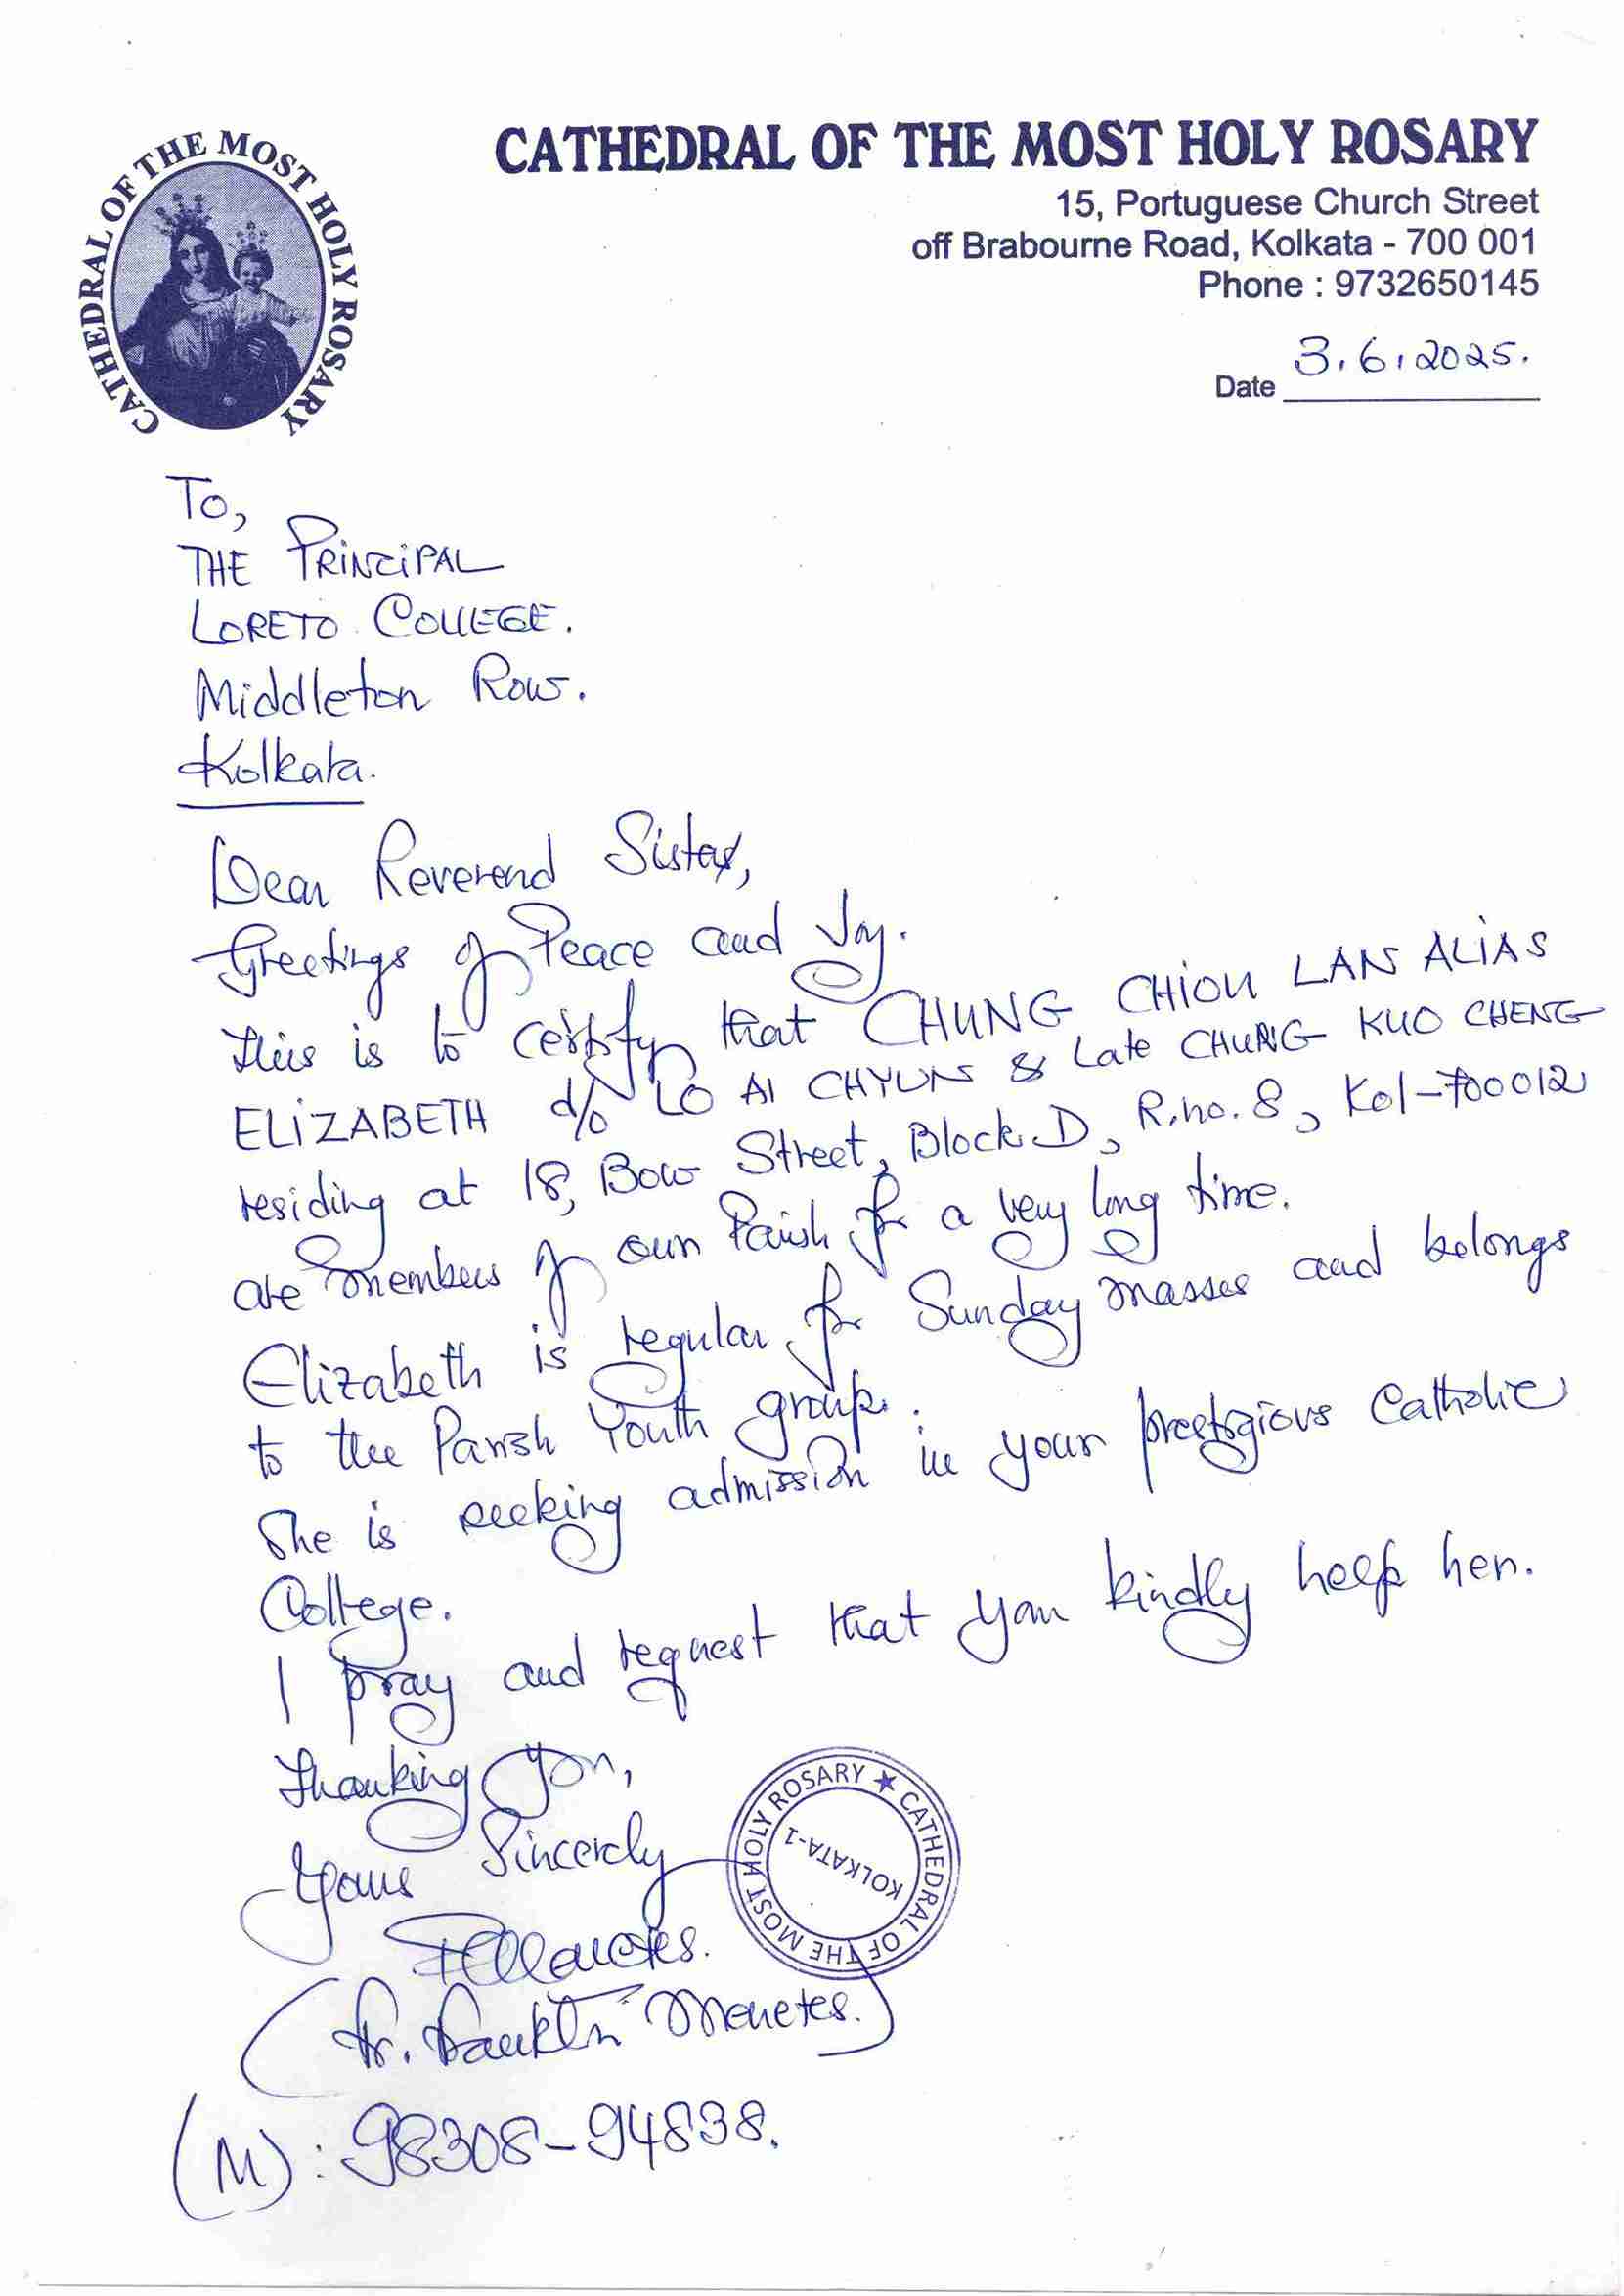 CATHEDRAL OF THE MOST HOLY ROSARY
CATHEDRAL OF THE MOST HOLY ROSARY
15, Portuguese Church Street
off Brabourne Road, Kolkata - 700 001
Phone : 9732650145
Date 3.6.2025.
To,
THE PRINCIPAL
LORETO COLLEGE.
Middleton Row.
Kolkata.
Dear Reverend Sister,
Greetings of Peace and Joy.
This is to certify that CHUNG CHIOU LAN ALIAS
ELIZABETH d/o LO AI CHYUN & Late CHUNG KUO CHENG
residing at 18, Bow Street, Block D, R.no. 8, Kol-700012
are members of our Parish for a very long time.
Elizabeth is regular for Sunday masses and belongs
to the Parish Youth group.
She is seeking admission in your prestigious Catholic
College.
I pray and request that you kindly help her.
Thanking you,
Yours Sincerely
(Fr. Franklin Menezes.)
(M): 98308-94838.
CATHEDRAL OF THE MOST HOLY ROSARY ★
KOLKATA-1